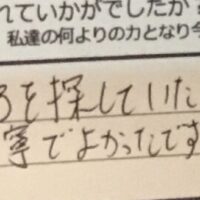 れていかがでしたか
私達の何よりの力となり今
ろを探していた
寧でよかったです